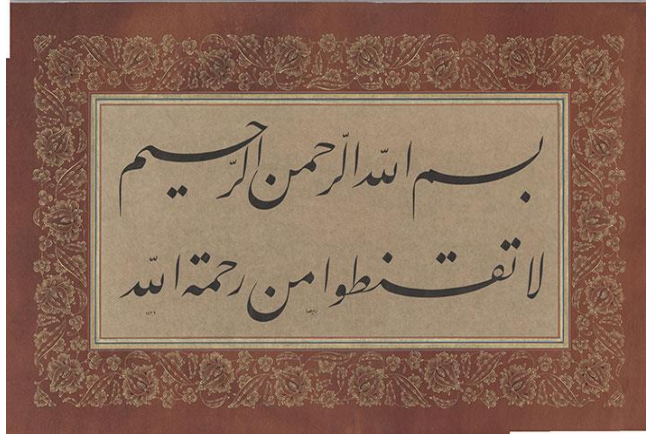 بسم الله الرّحمن الرّحيم
لا تقنطوا من رحمة الله
١٤٢٦